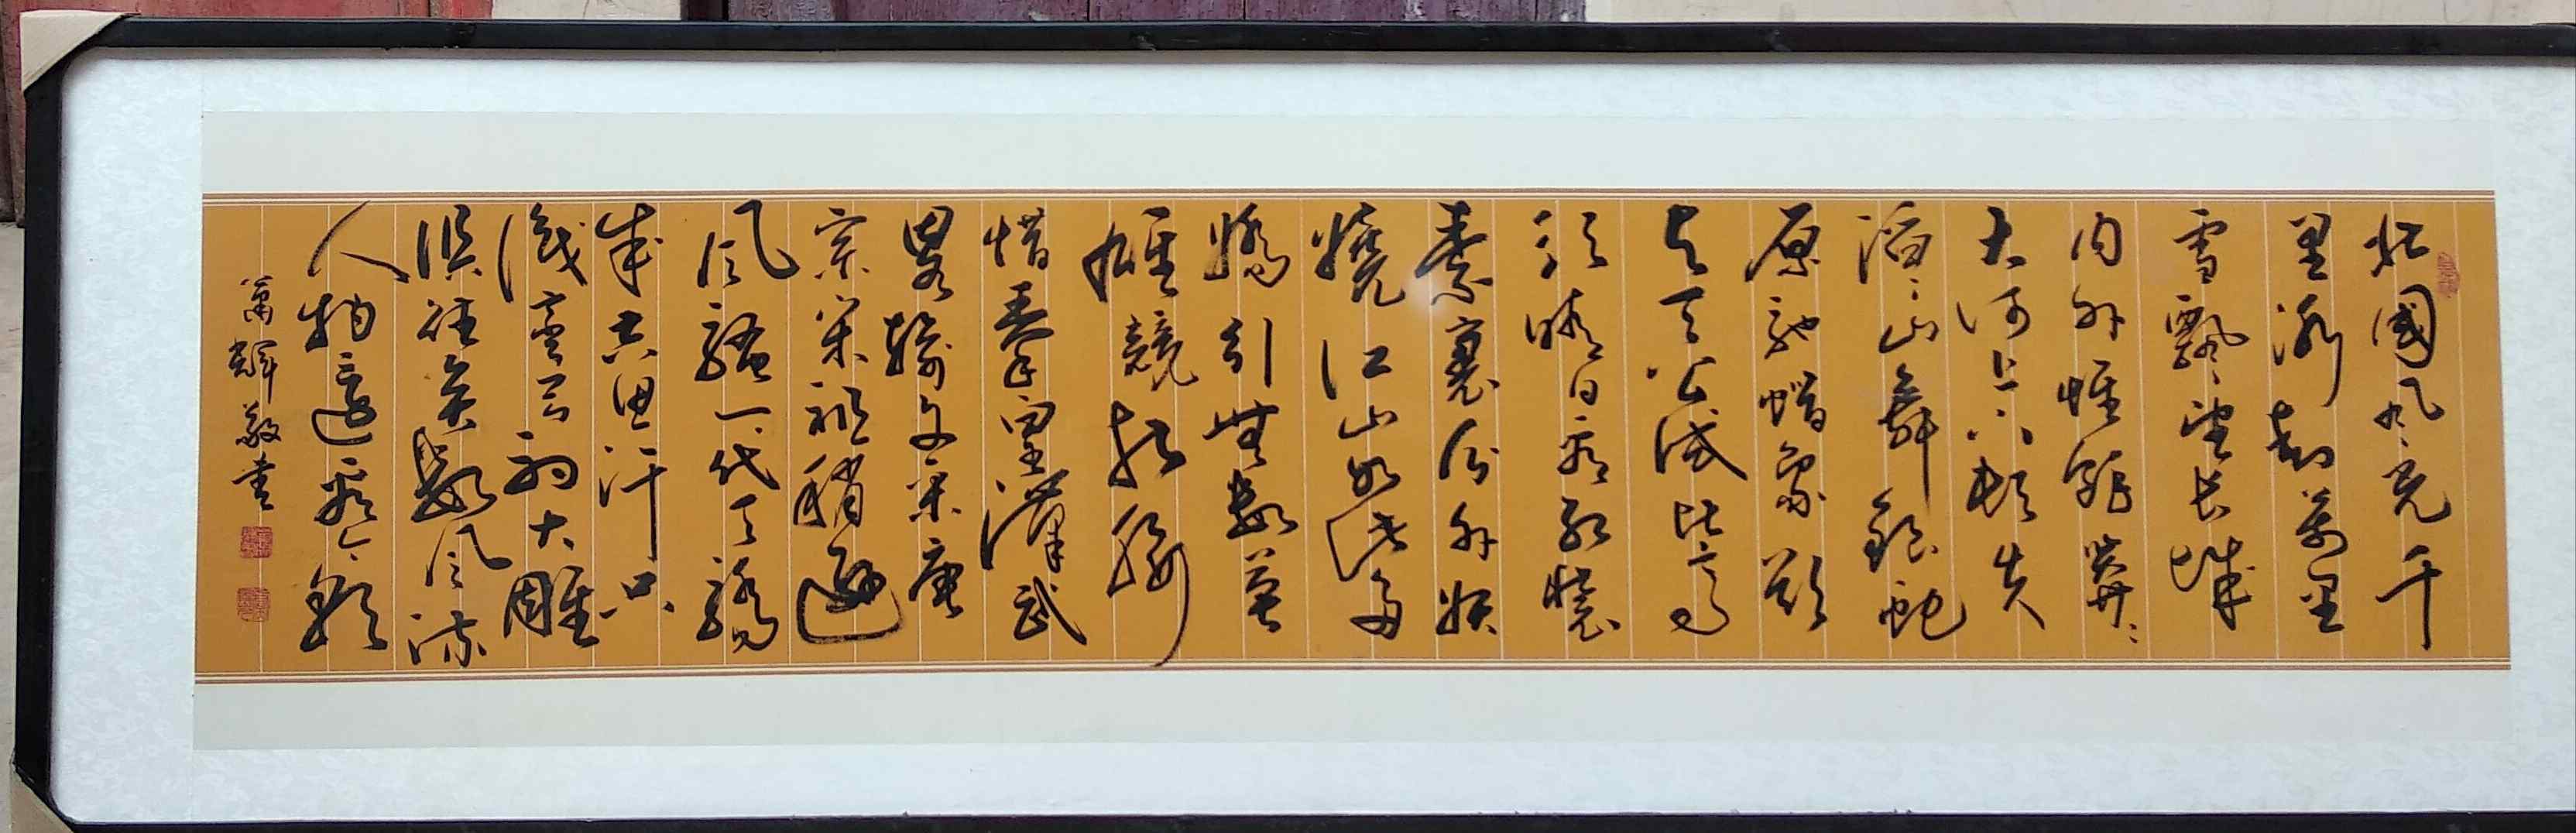 北國風光千
里冰封萬里
雪飄望長城
内外惟餘莽々
大河上下頓失
滔々山舞銀蛇
原馳蠟象欲
与天公試比高
須晴日看紅裝
素裹分外妖
嬈江山如此多
嬌引無數英
雄競折腰
惜秦皇漢武
略輸文采唐
宗宋祖稍遜
風騷一代天驕
成吉思汗只
識彎弓射大雕
俱往矣數風流
人物還看今朝
蕭輝敬書